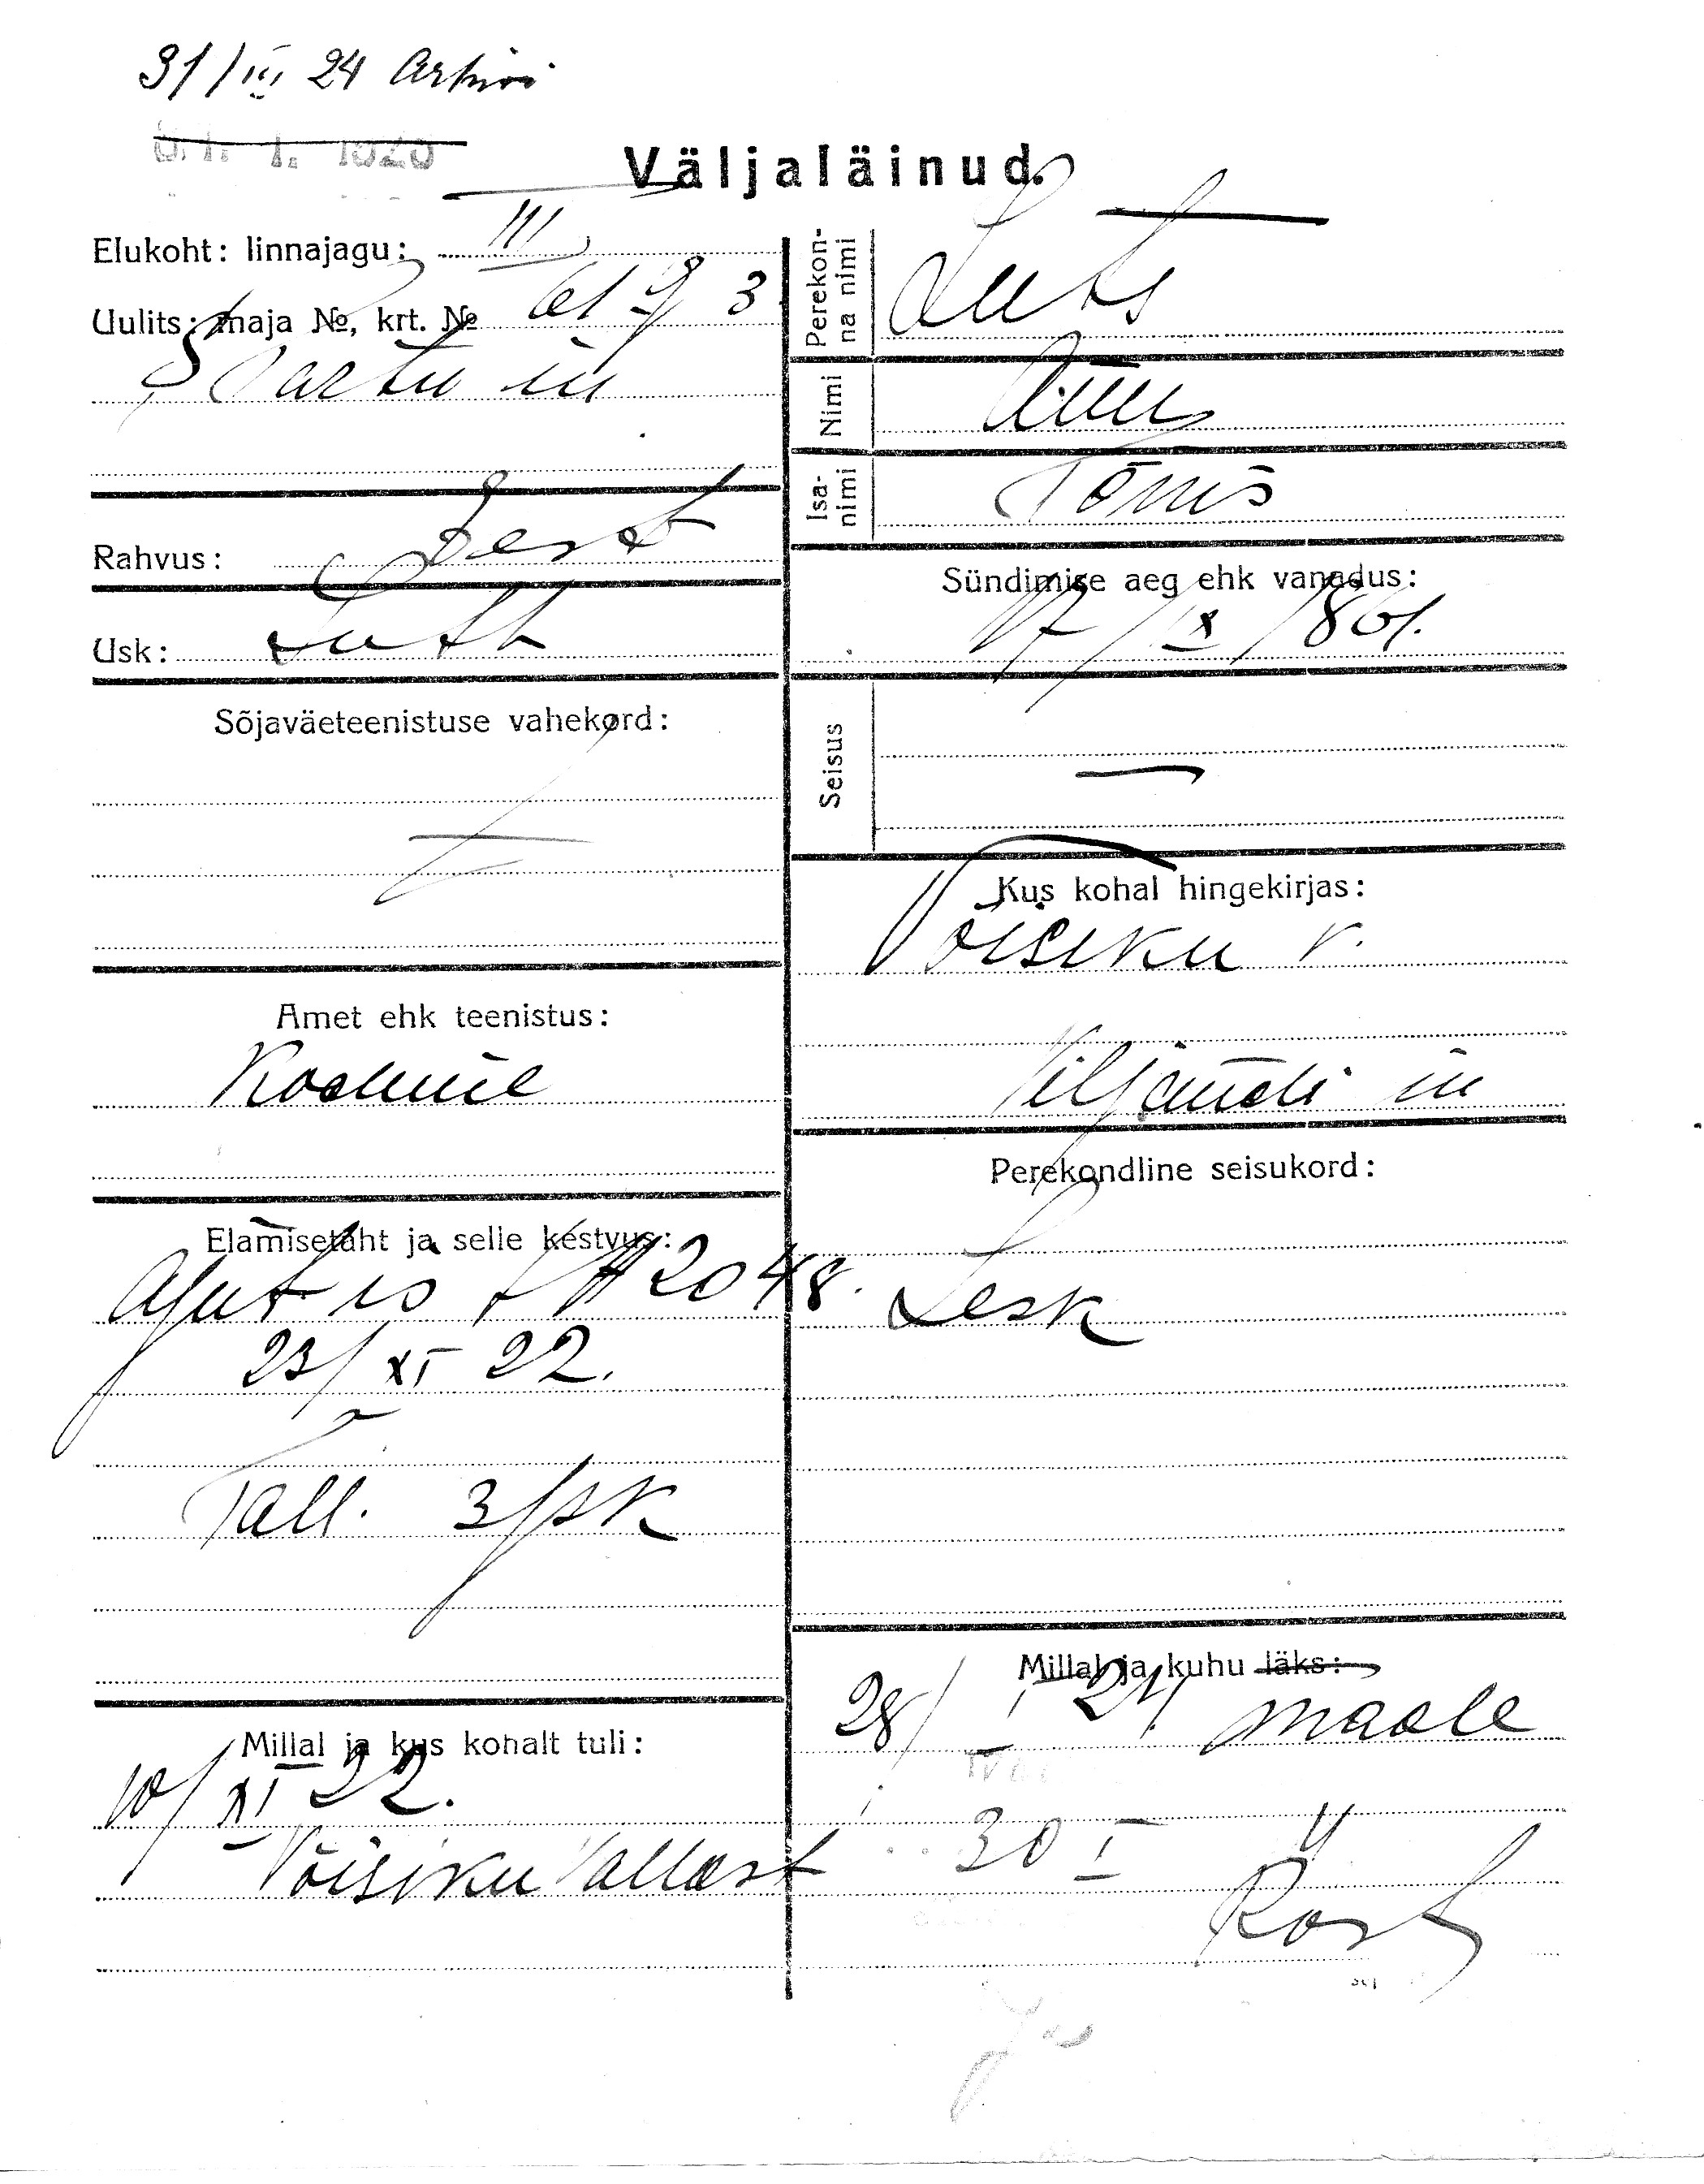 31/III 24 Arhivi
Väljaläinud.
Elukoht: linnajagu: III
Uulits: maja №, krt. № 61 3
S Tartu m
Rahvus: Eest
Usk: Luth
Sõjaväeteenistuse vahekord:
—
Amet ehk teenistus:
Kodune
Elamisetäht ja selle kestvus:
Ajut is t № 2048.
23/XI 22.
Tall. 3 jsk
Millal ja kus kohalt tuli:
10/XI 22.
Võisiku Vallast
Perekonna nimi Luts
Nimi
Isanimi Tõnis
Sündimise aeg ehk vanadus:
17/IX 1861.
Seisus —
Kus kohal hingekirjas:
Võisiku v.
Viljandi m
Perekondline seisukord:
Lesk
Millal ja kuhu läks:
28/I 24. maale
30 I